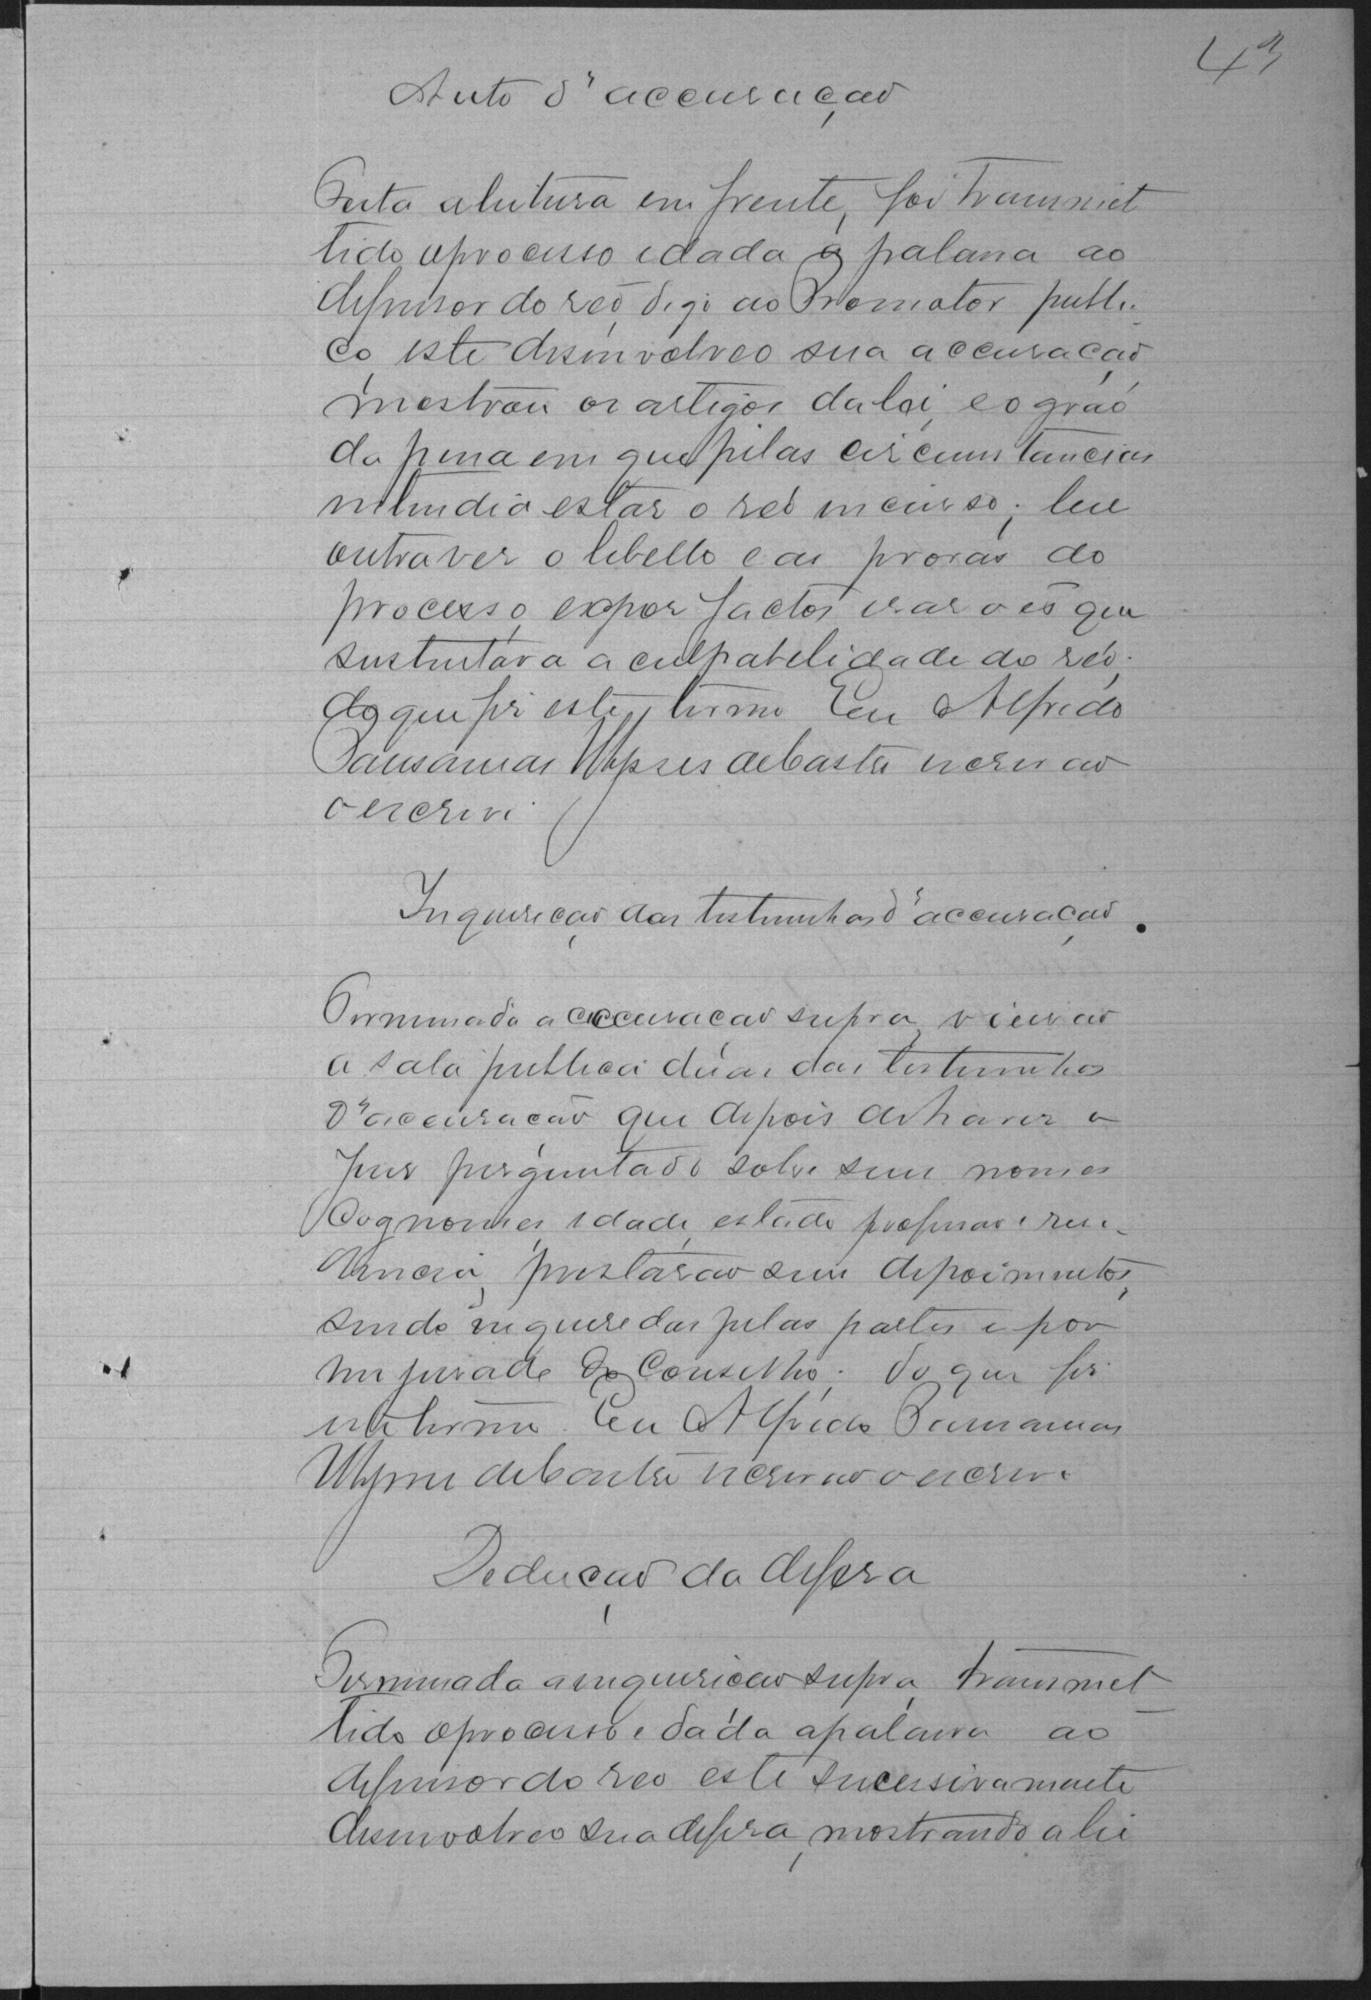 43
Auto d'accusação
Feita a leitura em frente, foi transmet
tido o processo e dada a palavra ao
defensor do réo, digo ao Promotor publi-
co, este desenvolveo sua accusação,
mostrou os artigos da lei, e o gráo
da pena em que pelas circumstancias
entendia estar o réo incurso; leu
outra vez o libello e as provas do
processo, expoz factos e razões que
sustentava a culpabilidade do réo.
do que fiz este termo Eu Alfredo
Ulysses de Castro escrivão
o escrevi
Inquirição das testemunhas d'accusação.
Terminada a accusação supra, vierão
a sala publica duas das testemunhas
d'accusação que depois de haver o
Juiz perguntado sobre seus nomes
cognomes, idade, estado profissão e resi-
dencia, prestarão seus depoimentos,
sendo inqueredas pelas partes e por
um jurado do Conselho; do que fiz
este termo. Eu Alfredo
Ulysses de Castro escrivão o escrevi
Deducção da defesa
Terminada a inquirição supra, transmet
tido o processo e dada a palavra ao
defensor do reo este sucessivamente
desenvolveo sua defesa, mostrando a lei